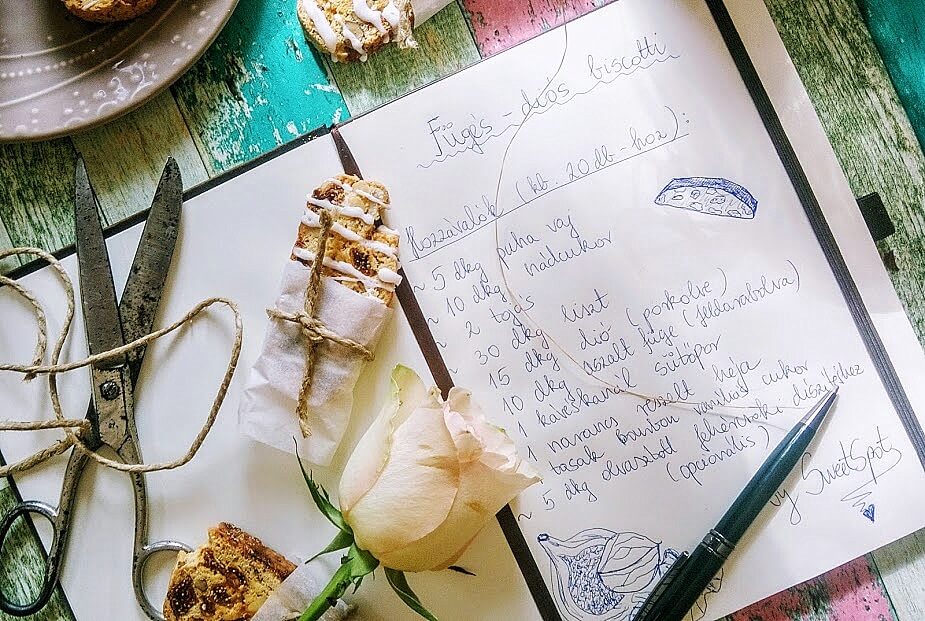 Fügés-diós biscotti
Hozzávalók (kb. 20 db-hoz):
~ 5 dkg puha vaj
~ 10 dkg nádcukor
~ 2 tojás
~ 30 dkg liszt
~ 15 dkg dió (pörkölve)
10 dkg aszalt füge (feldarabolva)
1 kávéskanál sütőpor
1 narancs reszelt héja
1 tasak bourbon vaníliás cukor
~ 5 dkg olvasztott fehércsoki díszítéshez
(opcionális)
by SweetSpots